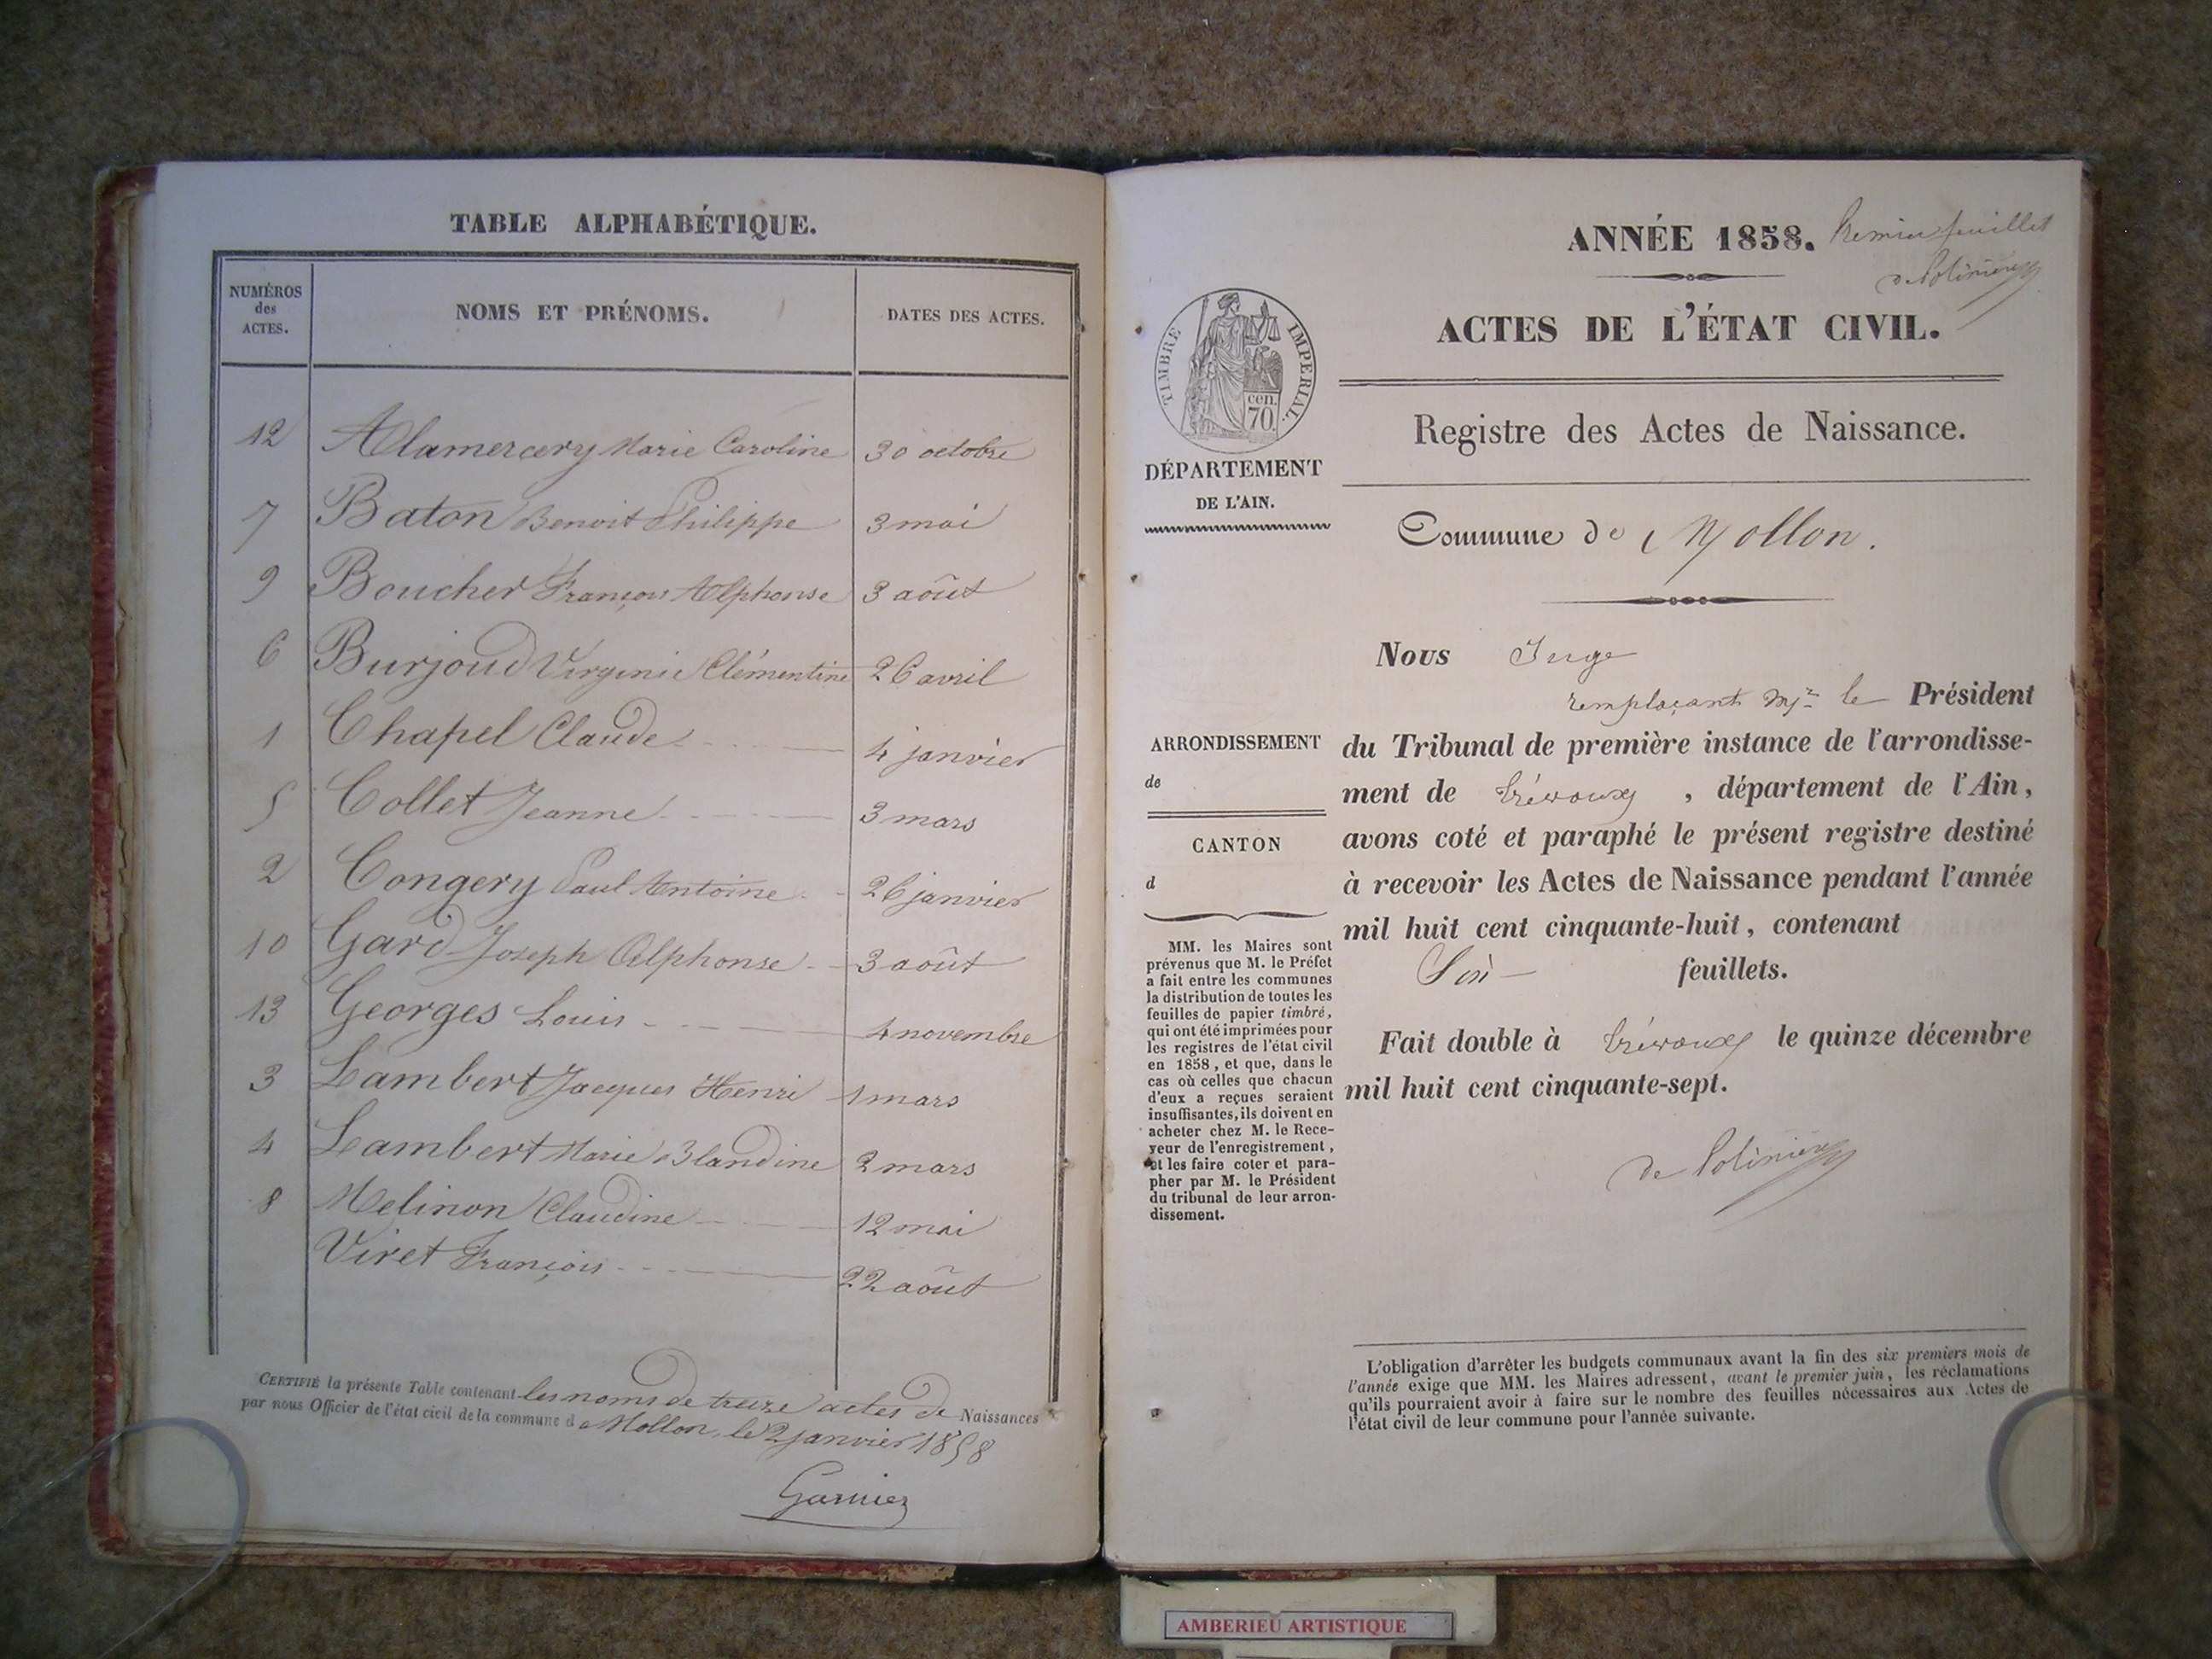 TABLE ALPHABÉTIQUE.
NUMÉROS des ACTES. NOMS ET PRÉNOMS. DATES DES ACTES.
12 Alamercery Marie Caroline 30 octobre
7 Baton Benoit Philippe 3 mai
9 Boucher François Alphonse 3 août
6 Burjoud Virginie Clémentine 26 avril
1 Chapel Claude 4 janvier
5 Collet Jeanne 3 mars
2 Congery Paul Antoine 26 janvier
10 Gard Joseph Alphonse 3 août
13 Georges Louis 4 novembre
3 Lambert Jacques Henri 1 mars
4 Lambert Marie Blandine 2 mars
8 Melinon Claudine 12 mai
Viret François 22 août
CERTIFIÉ la présente Table contenant les noms de treize actes de Naissances
par nous Officier de l'état civil de la commune de Mollon, le 2 janvier 1858
Garnier
ANNÉE 1858. Premier feuillet
de Polinière
ACTES DE L'ÉTAT CIVIL.
TIMBRE IMPERIAL.
cen.
70
Registre des Actes de Naissance.
DÉPARTEMENT
DE L'AIN.
Commune de Mollon.
Nous Juge
remplaçant Mr le Président
du Tribunal de première instance de l'arrondisse-
ment de Trévoux, département de l'Ain,
avons coté et paraphé le présent registre destiné
à recevoir les Actes de Naissance pendant l'année
mil huit cent cinquante-huit, contenant
Six feuillets.
Fait double à Trévoux le quinze décembre
mil huit cent cinquante-sept.
de Polinière
ARRONDISSEMENT
de
CANTON
d
MM. les Maires sont
prévenus que M. le Préfet
a fait entre les communes
la distribution de toutes les
feuilles de papier timbré,
qui ont été imprimées pour
les registres de l'état civil
en 1858, et que, dans le
cas où celles que chacun
d'eux a reçues seraient
insuffisantes, ils doivent en
acheter chez M. le Rece-
veur de l'enregistrement,
et les faire coter et para-
pher par M. le Président
du tribunal de leur arron-
dissement.
L'obligation d'arrêter les budgets communaux avant la fin des six premiers mois de
l'année exige que MM. les Maires adressent, avant le premier juin, les réclamations
qu'ils pourraient avoir à faire sur le nombre des feuilles nécessaires aux Actes de
l'état civil de leur commune pour l'année suivante.
AMBERIEU ARTISTIQUE